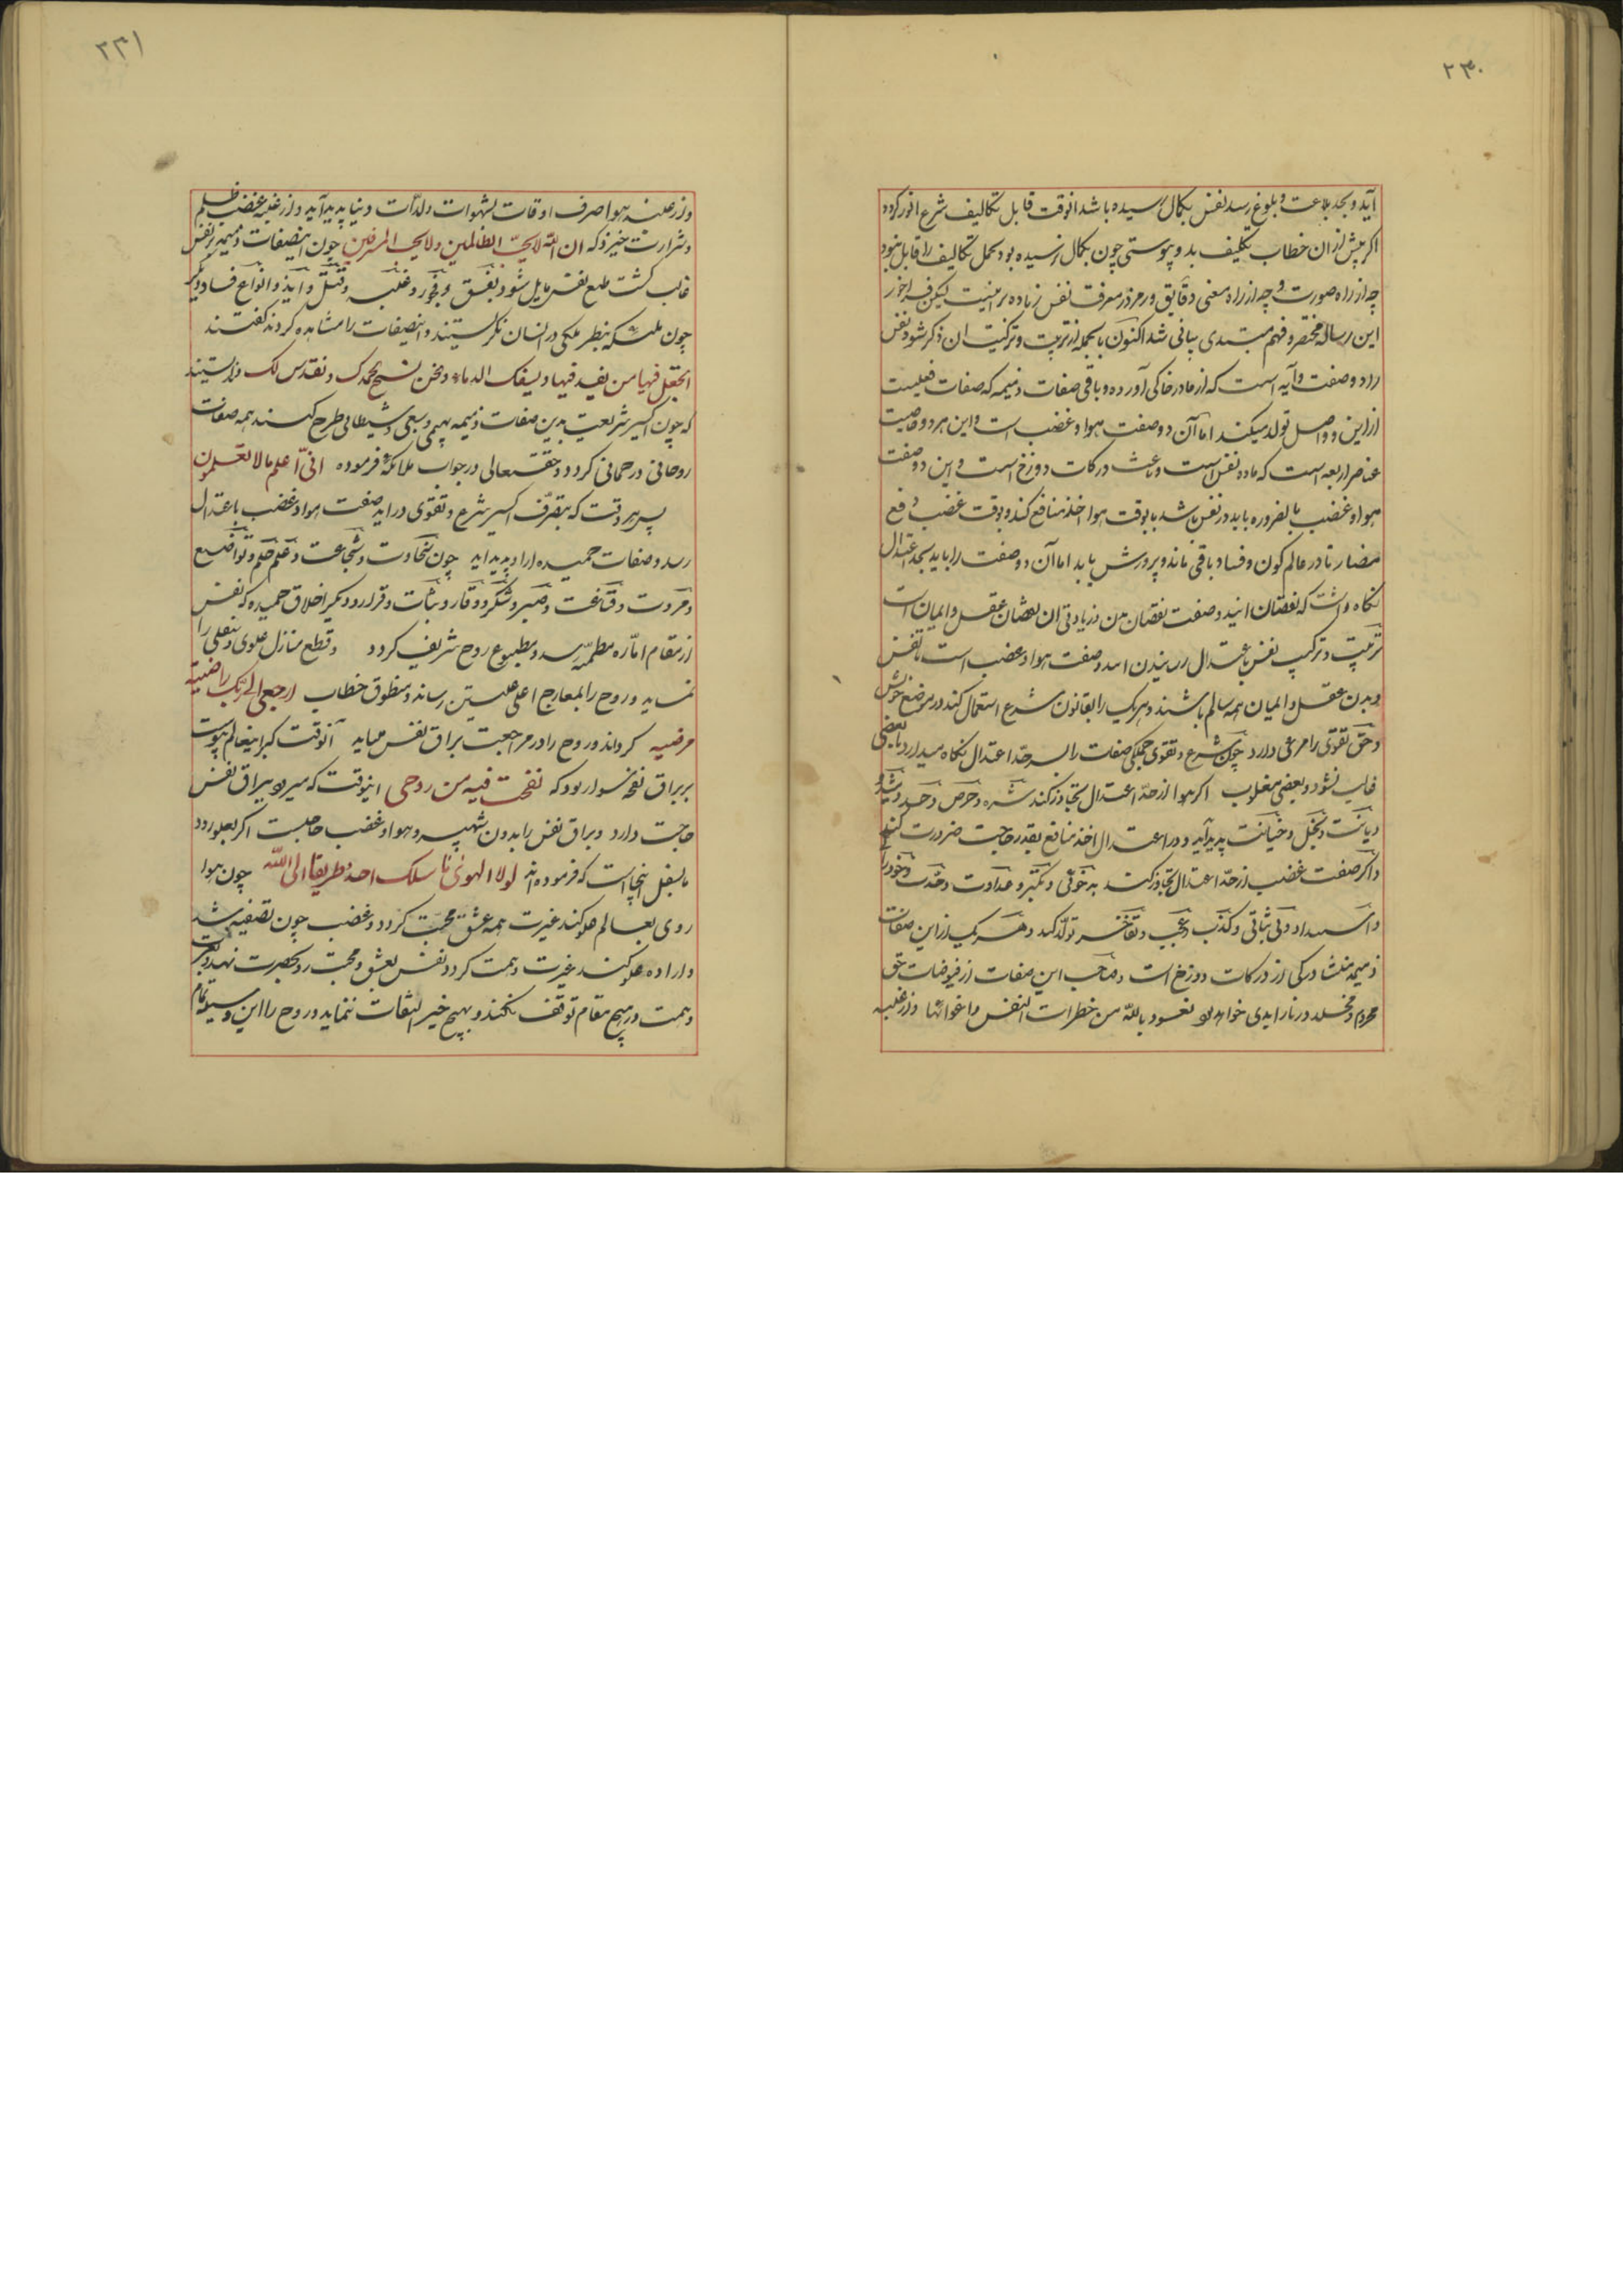 ۲۳۰
آید و بحد بلاغت و بلوغ رسد نفس بکمال رسیده باشد انوقت قابل تکالیف شرع انور کردد
اکر پیش از ان خطاب تکلیف بدو پیوستی چون بکمال نرسیده بود تحمل تکالیف را قابل نبود
چه از راه صورت و چه از راه معنی دقایق و رمز در معرفت نفس زیاده بر اینست لیکن فراخور
این رساله مختصر و فهم مبتدی بیانی شد اکنون بالجمله از تربیت و ترکیت ان ذکر شود نفس
را دو صفت ذاتیه است که از مادر خاکی آورده و باقی صفات ذمیمه که صفات فعلیست
از این دو اصل تولد میکند اما آن دو صفت هوا و غضب است و این هر دو خاصیت
عناصر اربعه است که ماده نفس است و باعث درکات دوزخ است و این دو صفت
هوا و غضب بالضروره باید در نفس باشد بابوقت هوا اخذ منافع کند و بوقت غضب دفع
مضار تا در عالم کون و فساد باقی ماند و پرورش یابد اما آن دو صفت را باید بحد اعتدال
نکاه داشت که نقصان ایندو صفت نقصان من و زیادتی ان نقصان عقل و ایمان است
تربیت و ترکیب نفس باعتدال رسانیدن اسدو صفت هوا و غضب است تا نفس
و بدن و عقل و ایمان همه سالم باشند و هریک را بقانون شرع استعمال کند در موضع خویش
و حق تقوی را مرعی دارد چون شرع و تقوی جملکی صفات را بسر حد اعتدال نکاه میدارد تا بعضی
غالب نشود و بعضی مغلوب اکر هوا از حد اعتدال تجاوز کند شره و حرص و حسد و
دیاثت و بخل و خیانت پدید آید و در اعتدال اخذ منافع بقدر حاجت ضرورت کند
و اکر صفت غضب از حد اعتدال تجاوز کند بدخوئی و تکبر و عداوت و حدت و
و استبداد و بی ثباتی و کذب و عجب و تفاخر تولد کند و هر یک از این صفات
ذمیمه منشا درکی از درکات دوزخ است و صاحب این صفات از فیوضات حق
محروم و مخلد در نار ابدی خواهد بود نعوذ بالله من خطرات النفس و اغوائها و از غلبه
۲۳۱
و از غلبه هوا صرف اوقات بشهوات و لذات دنیا پدید آید و از غلبه غضب ظلم
و شرارت خیزد که ان الله لا یحب الظالمین و لا یحب المسرفین چون اینصفات ذمیمه بر نفس
غالب کشت طبع نفس مایل شود بفسق و فجور و غلبه و قتل و ایذا و انواع فساد دیکر
چون ملئکه بنظر ملکی در انسان نکریستند و اینصفات را مشاهده کردند کفتند
اتجعل فیها من یفسد فیها و یسفک الدماء و نحن نسبح بحمدک و نقدس لک ندانستند
که چون اکسیر شریعت بدین صفات ذمیمه بهیمی و سبعی و شیطانی طرح کنند همه صفات
روحانی و رحمانی کردد و حقتعالی در جواب ملائکه فرموده انی اعلم ما لا تعلمون
پس هر وقت که بتصرف اکسیر شرع و تقوی دراید صفت هوا و غضب باعتدال
رسد و صفات حمیده ازاو پدید اید چون سخاوت و شجاعت و علم و حلم و تواضع
و مروت و قناعت و صبر و شکر و وقار و ثبات و قرار و دیکر اخلاق حمیده که نفس
از مقام اماره بمطمئنه رسد و مطبوع روح شریف کردد و قطع منازل علوی و سفلی را
نماید و روح را بمعارج اعلی علیین رساند و منطوق خطاب ارجعی الی ربک راضیة
مرضیه کرداند و روح را در مراجعت براق نفس میباید آنوقت که باینعالم پیوست
بر براق نفخه سوار بود که نفخت فیه من روحی اینوقت که میرود ببراق نفس
حاجت دارد و براق نفس را بدون شهپر و هوا و غضب حاجت اکر بعلو رود
یا بسفل اینجا است که فرموده اند لولا الهوی ما سلک احد طریقا الی الله چون هوا
روی بعالم علو کند غیرت همه عشق و محبت کردد و غضب چون تصفیه شد
و اراده علو کند غیرت و همت کردد نفس بعشق و محبت رو بحضرت نهد و
و همت در هیچ مقام توقف نکند و بهیچ خیر التفات ننماید و روح را این وسیله تمام